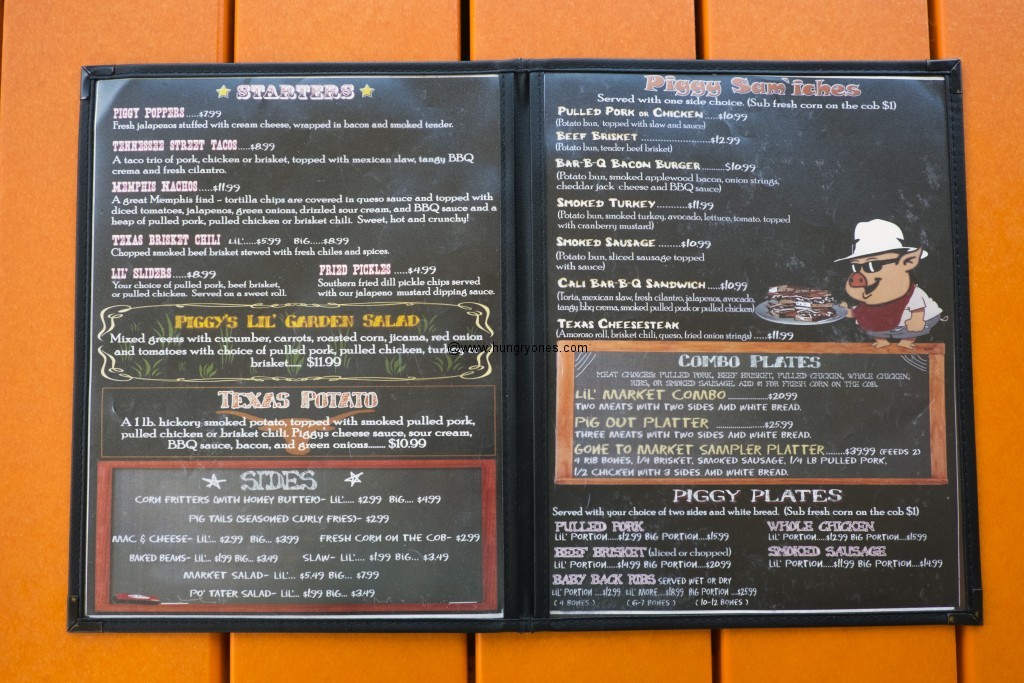 STARTERS
PIGGY POPPERS.....$7.99
Fresh jalapenos stuffed with cream cheese, wrapped in bacon and smoked tender.
TENNESSEE STREET TACOS.....$8.99
A taco trio of pork, chicken or brisket, topped with mexican slaw, tangy BBQ
crema and fresh cilantro.
MEMPHIS NACHOS.....$11.99
A great Memphis find - tortilla chips are covered in queso sauce and topped with
diced tomatoes, jalapenos, green onions, drizzled sour cream, and BBQ sauce and a
heap of pulled pork, pulled chicken or brisket chili. Sweet, hot and crunchy!
TEXAS BRISKET CHILI LIL'.....$5.99 BIG.....$8.99
Chopped smoked beef brisket stewed with fresh chiles and spices.
LIL' SLIDERS.....$8.99
Your choice of pulled pork, beef brisket,
or pulled chicken. Served on a sweet roll.
FRIED PICKLES .....$4.99
Southern fried dill pickle chips served
with our jalapeno mustard dipping sauce.
PIGGY'S LIL' GARDEN SALAD
Mixed greens with cucumber, carrots, roasted corn, jicama, red onion
and tomatoes with choice of pulled pork, pulled chicken, turkey or
brisket..... $11.99
TEXAS POTATO
A 1 lb. hickory smoked potato, topped with smoked pulled pork,
pulled chicken or brisket chili. Piggys cheese sauce, sour cream,
BBQ sauce, bacon, and green onions....... $10.99
SIDES
CORN FRITTERS (WITH HONEY BUTTER)- LIL'.... $2.99 BIG.... $4.99
PIG TAILS (SEASONED CURLY FRIES)- $2.99
MAC & CHEESE- LIL'... $2.99 BIG... $3.99 FRESH CORN ON THE COB- $2.99
BAKED BEANS- LIL'... $1.99 BIG... $3.49 SLAW- LIL'.... $1.99 BIG... $3.49
MARKET SALAD- LIL'... $5.49 BIG... $7.99
PO' TATER SALAD- LIL'... $1.99 BIG... $3.49
Piggy Sam'iches
Served with one side choice. (Sub fresh corn on the cob $1)
PULLED PORK OR CHICKEN.....$10.99
(Potato bun, topped with slaw and sauce)
BEEF BRISKET ........................$12.99
(Potato bun, tender beef brisket)
BAR-B-Q BACON BURGER........$10.99
(Potato bun, smoked applewood bacon, onion strings,
cheddar jack cheese and BBQ sauce)
SMOKED TURKEY..........$11.99
(Potato bun, smoked turkey, avocado, lettuce, tomato, topped
with cranberry mustard)
SMOKED SAUSAGE ........$10.99
(Potato bun, sliced sausage topped
with sauce)
CALI BAR-B-Q SANDWICH .....$10.99
(Torta, mexican slaw, fresh cilantro, jalapenos, avocado,
tangy bbq crema, smoked pulled pork or pulled chicken)
TEXAS CHEESESTEAK
(Amoroso roll, brisket chili, queso, fried onion strings) .....$11.99
COMBO PLATES
MEAT CHOICES: PULLED PORK, BEEF BRISKET, PULLED CHICKEN, WHOLE CHICKEN,
RIBS, OR SMOKED SAUSAGE. ADD $1 FOR FRESH CORN ON THE COB.
LIL' MARKET COMBO ..............$20.99
TWO MEATS WITH TWO SIDES AND WHITE BREAD.
PIG OUT PLATTER .................$25.99
THREE MEATS WITH TWO SIDES AND WHITE BREAD.
GONE TO MARKET SAMPLER PLATTER.......$39.99 (FEEDS 2)
4 RIB BONES, 1/4 BRISKET, SMOKED SAUSAGE, 1/4 LB PULLED PORK,
1/2 CHICKEN WITH 3 SIDES AND WHITE BREAD.
PIGGY PLATES
Served with your choice of two sides and white bread. (Sub fresh corn on the cob $1)
PULLED PORK
LIL' PORTION....$12.99 BIG PORTION....$15.99
WHOLE CHICKEN
LIL' PORTION....$12.99 BIG PORTION....$15.99
BEEF BRISKET (sliced or chopped)
LIL' PORTION....$14.99 BIG PORTION....$20.99
SMOKED SAUSAGE
LIL' PORTION....$11.99 BIG PORTION....$14.99
BABY BACK RIBS SERVED WET OR DRY
LIL' PORTION ....$12.99 LIL' MORE....$18.99 BIG PORTION ....$25.99
( 4 BONES ) ( 6-7 BONES ) ( 10-12 BONES )
©www.hungryones.com